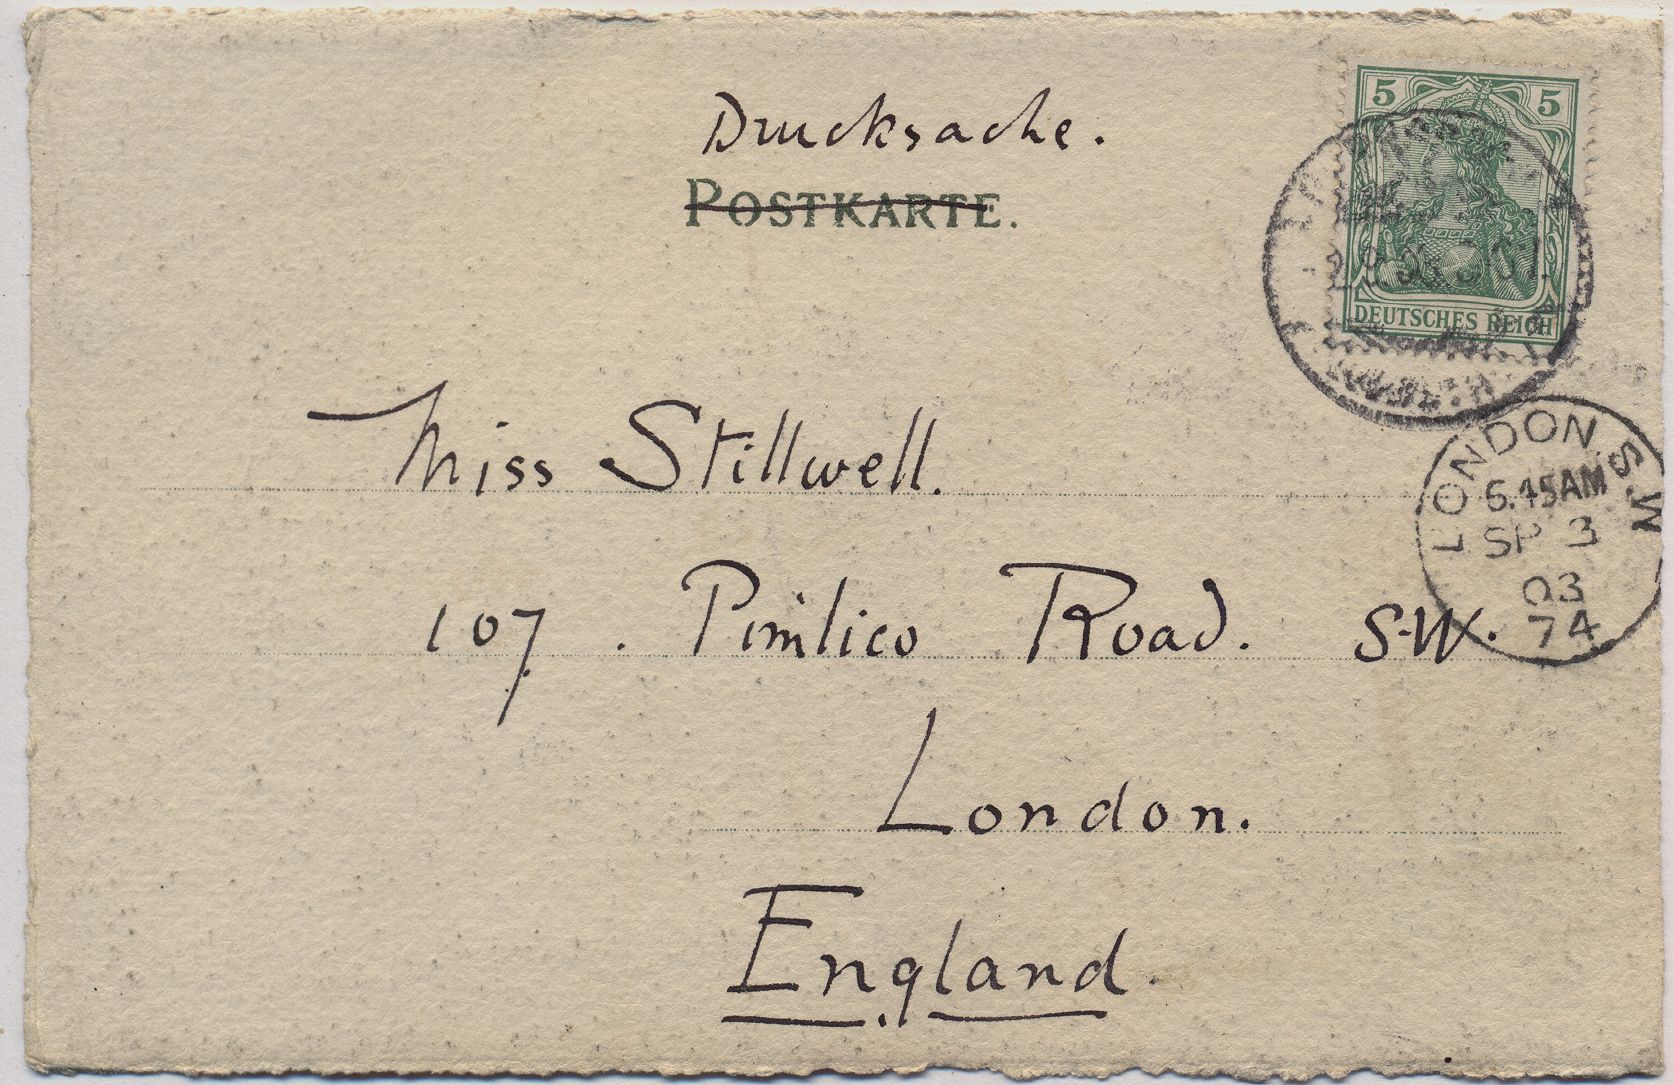 Drucksache.
POSTKARTE.
5 5
DEUTSCHES REICH
LONDON.S.W
6.45AM
SP 3
03
74
Miss Stillwell.
107. Pimlico Road. S.W.
London.
England.